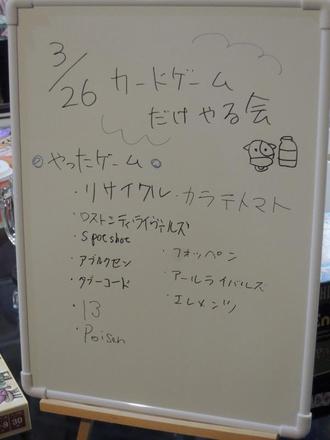 3/26 カードゲーム
だけやる会
やったゲーム
・リサイクル・カラテトマト
・ロストシティ・ライヴァルズ
・Spotshot
・アブルクセン
・タブーコード
・13
・Poison
・フォッペン
・アールライバルズ
・エレメンツ
30